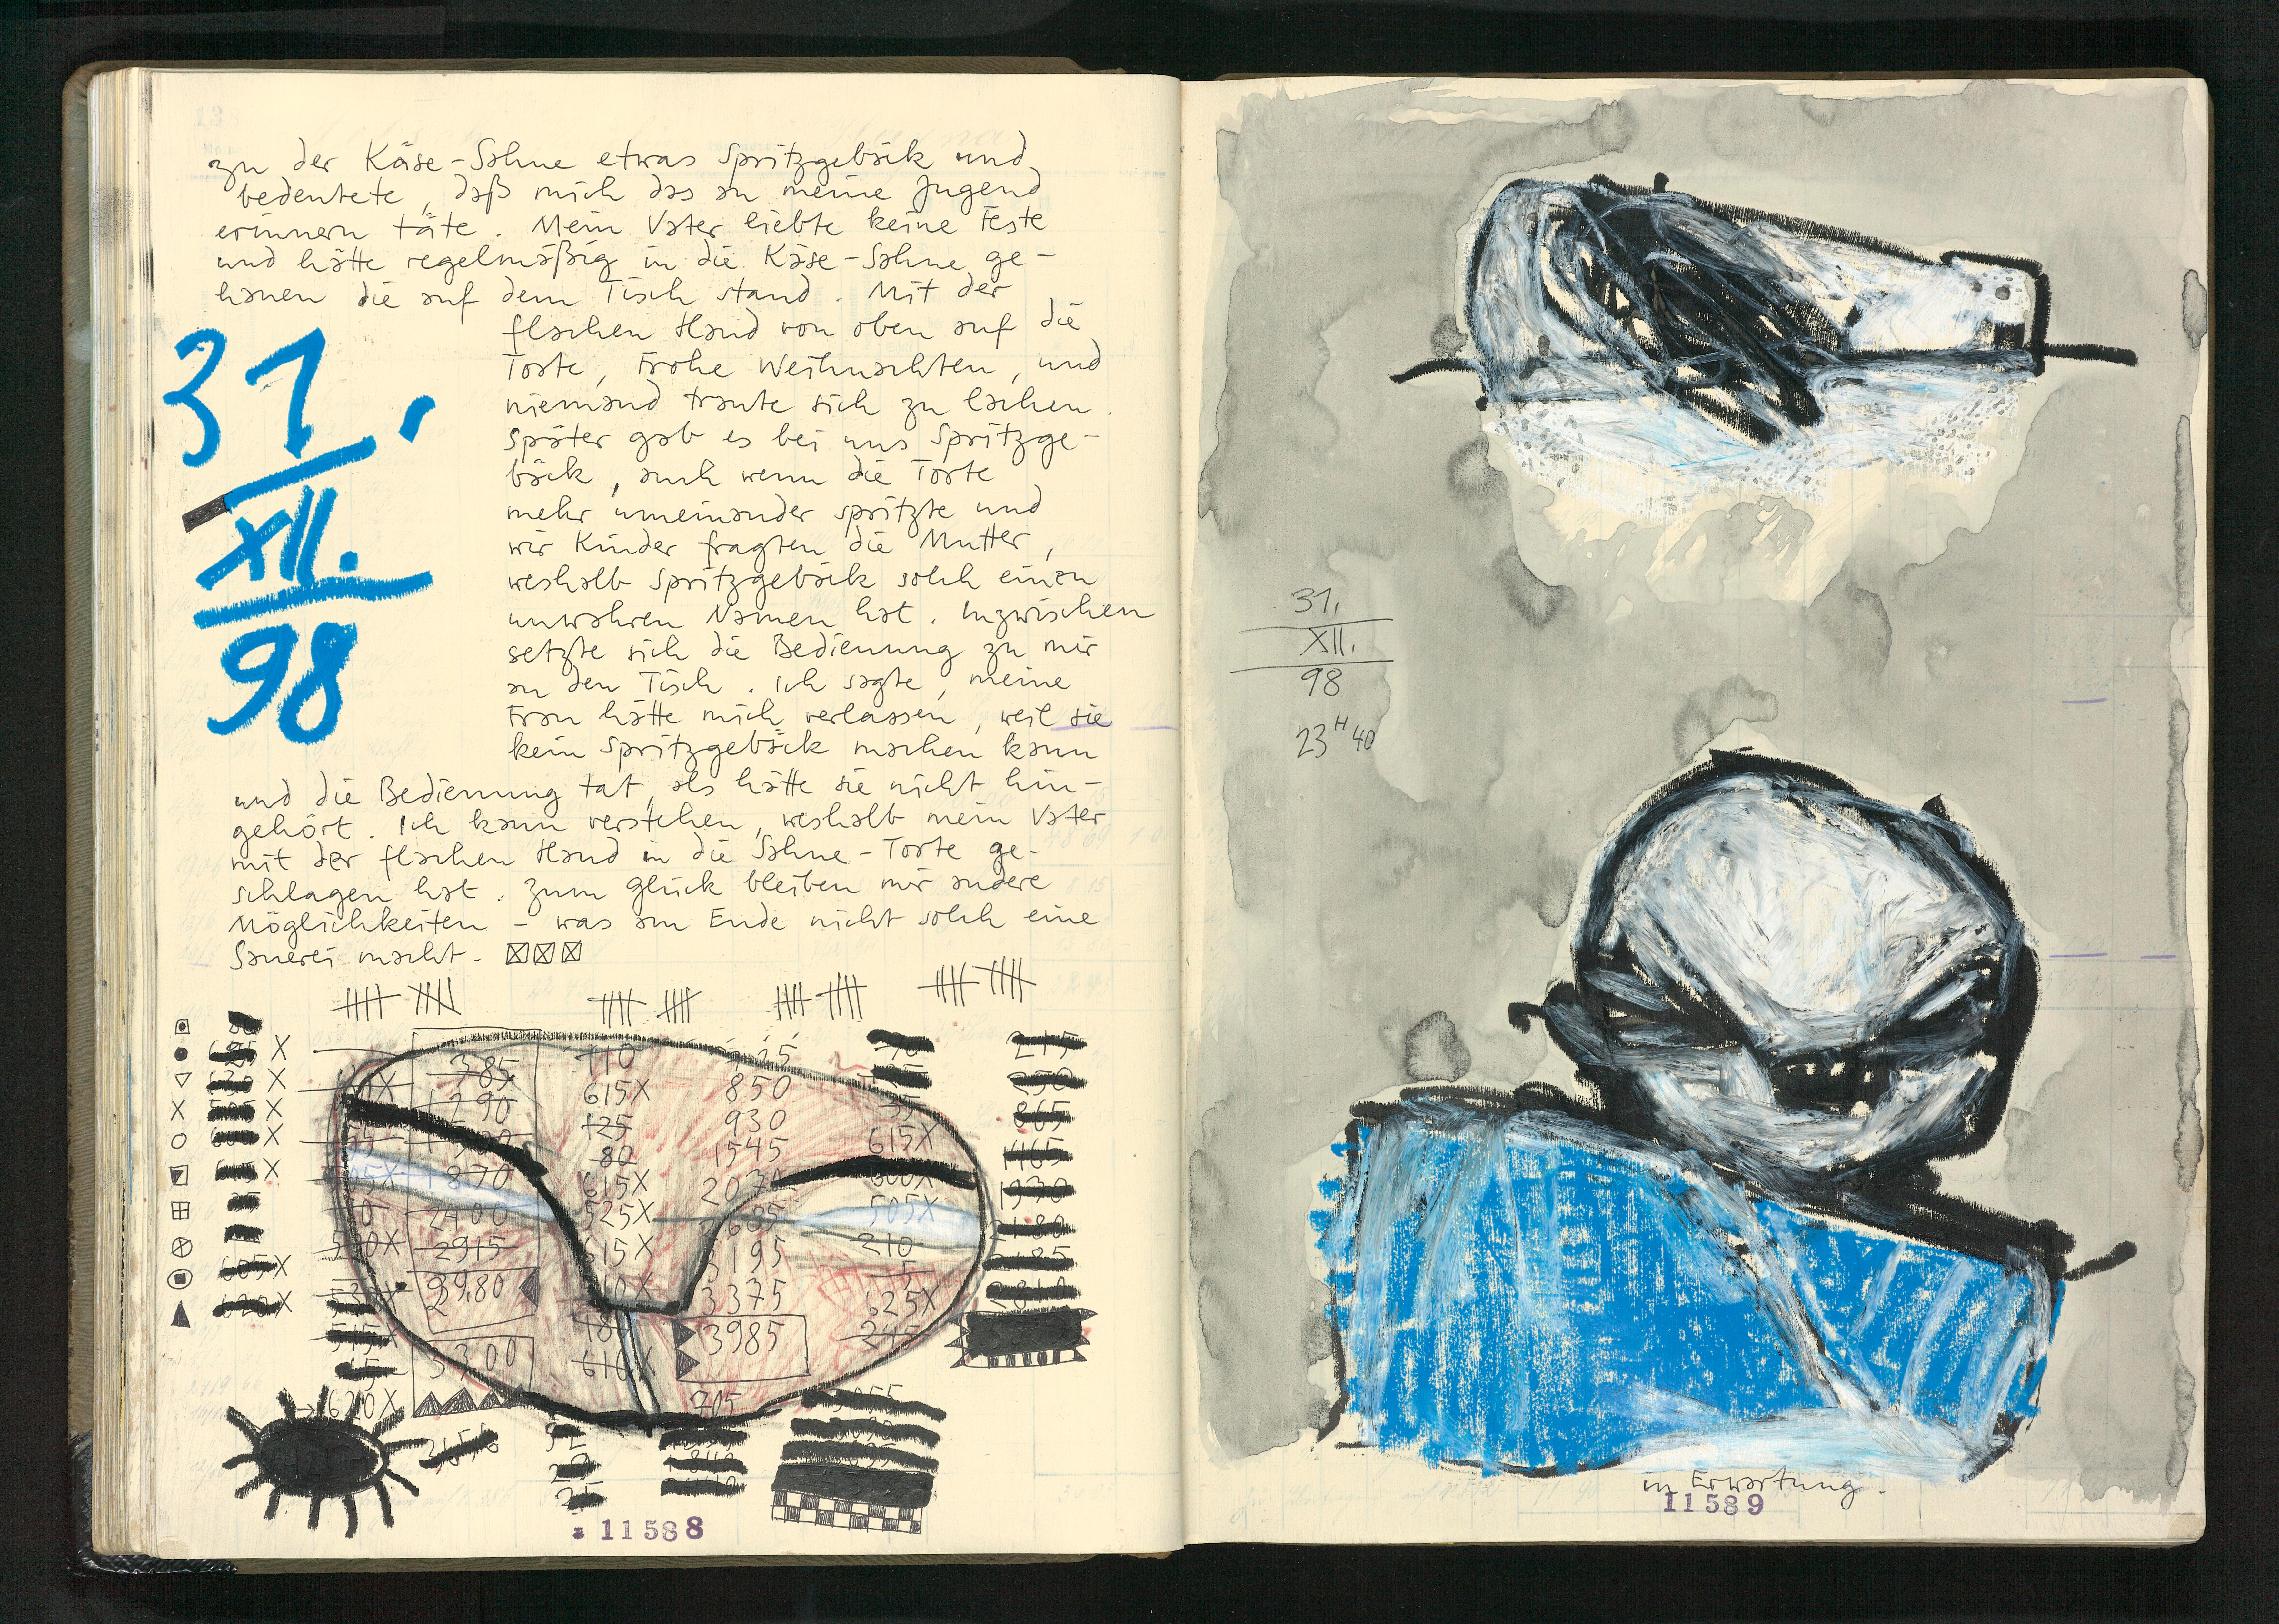 zu der Käse-Sahne etwas Spritzgebäck und
bedeutete, daß mich das an meine Jugend
erinnern täte. Mein Vater liebte keine Feste
und hätte regelmäßig in die Käse-Sahne ge-
hauen die auf dem Tisch stand. Mit der
flachen Hand von oben auf die
Torte, Frohe Weihnachten, und
niemand traute sich zu lachen.
Später gab es bei uns Spritzge-
bäck, auch wenn die Torte
mehr umeinander spritzte und
wir Kinder fragten die Mutter,
weshalb Spritzgebäck solch einen
unwahren Namen hat. Inzwischen
setzte sich die Bedienung zu mir
an den Tisch. Ich sagte, meine
Frau hätte mich verlassen, weil sie
kein Spritzgebäck machen kann
und die Bedienung tat, als hätte sie nicht hin-
gehört. Ich kann verstehen, weshalb mein Vater
mit der flachen Hand in die Sahne-Torte ge-
schlagen hat. Zum Glück bleiben mir andere
Möglichkeiten - was am Ende nicht solch eine
Sauerei macht.
31.
XII.
98
385
110
615X
850
125
930
80
1545
615X
615X
870
2400
525X
505X
2915
615X
3195
210
3980
3375
625X
3985
245
3300
610X
620X
705
215
250
865
1465
1930
605X
620X
11588
31.
XII.
98
23H40
in Erwartung.
11589